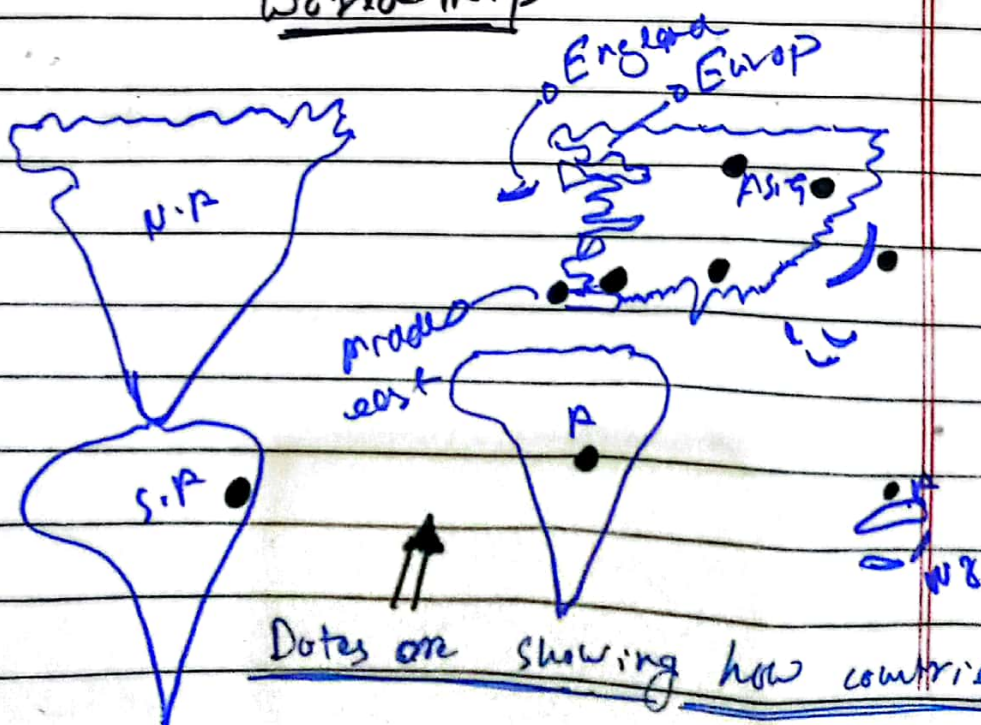 England
Europ
N.A
Asia
east
A
S.A
A
NZ
Dotes are showing how countri